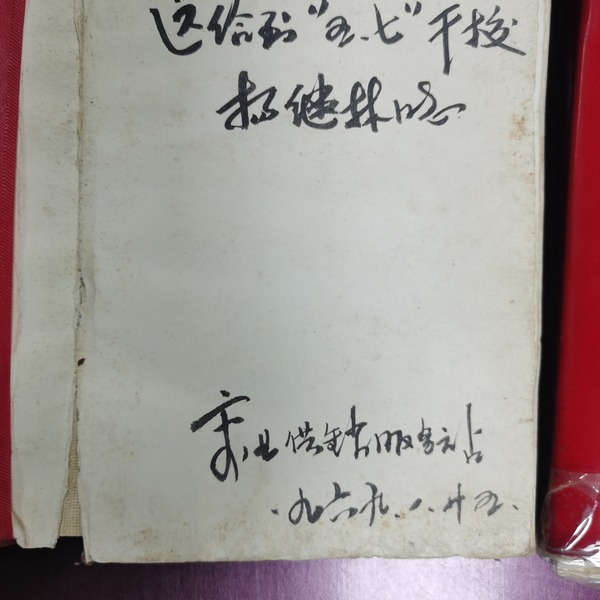 送给到“五.七”干校
杨继林同志
业供销服务站
一九六九.八.廿五.